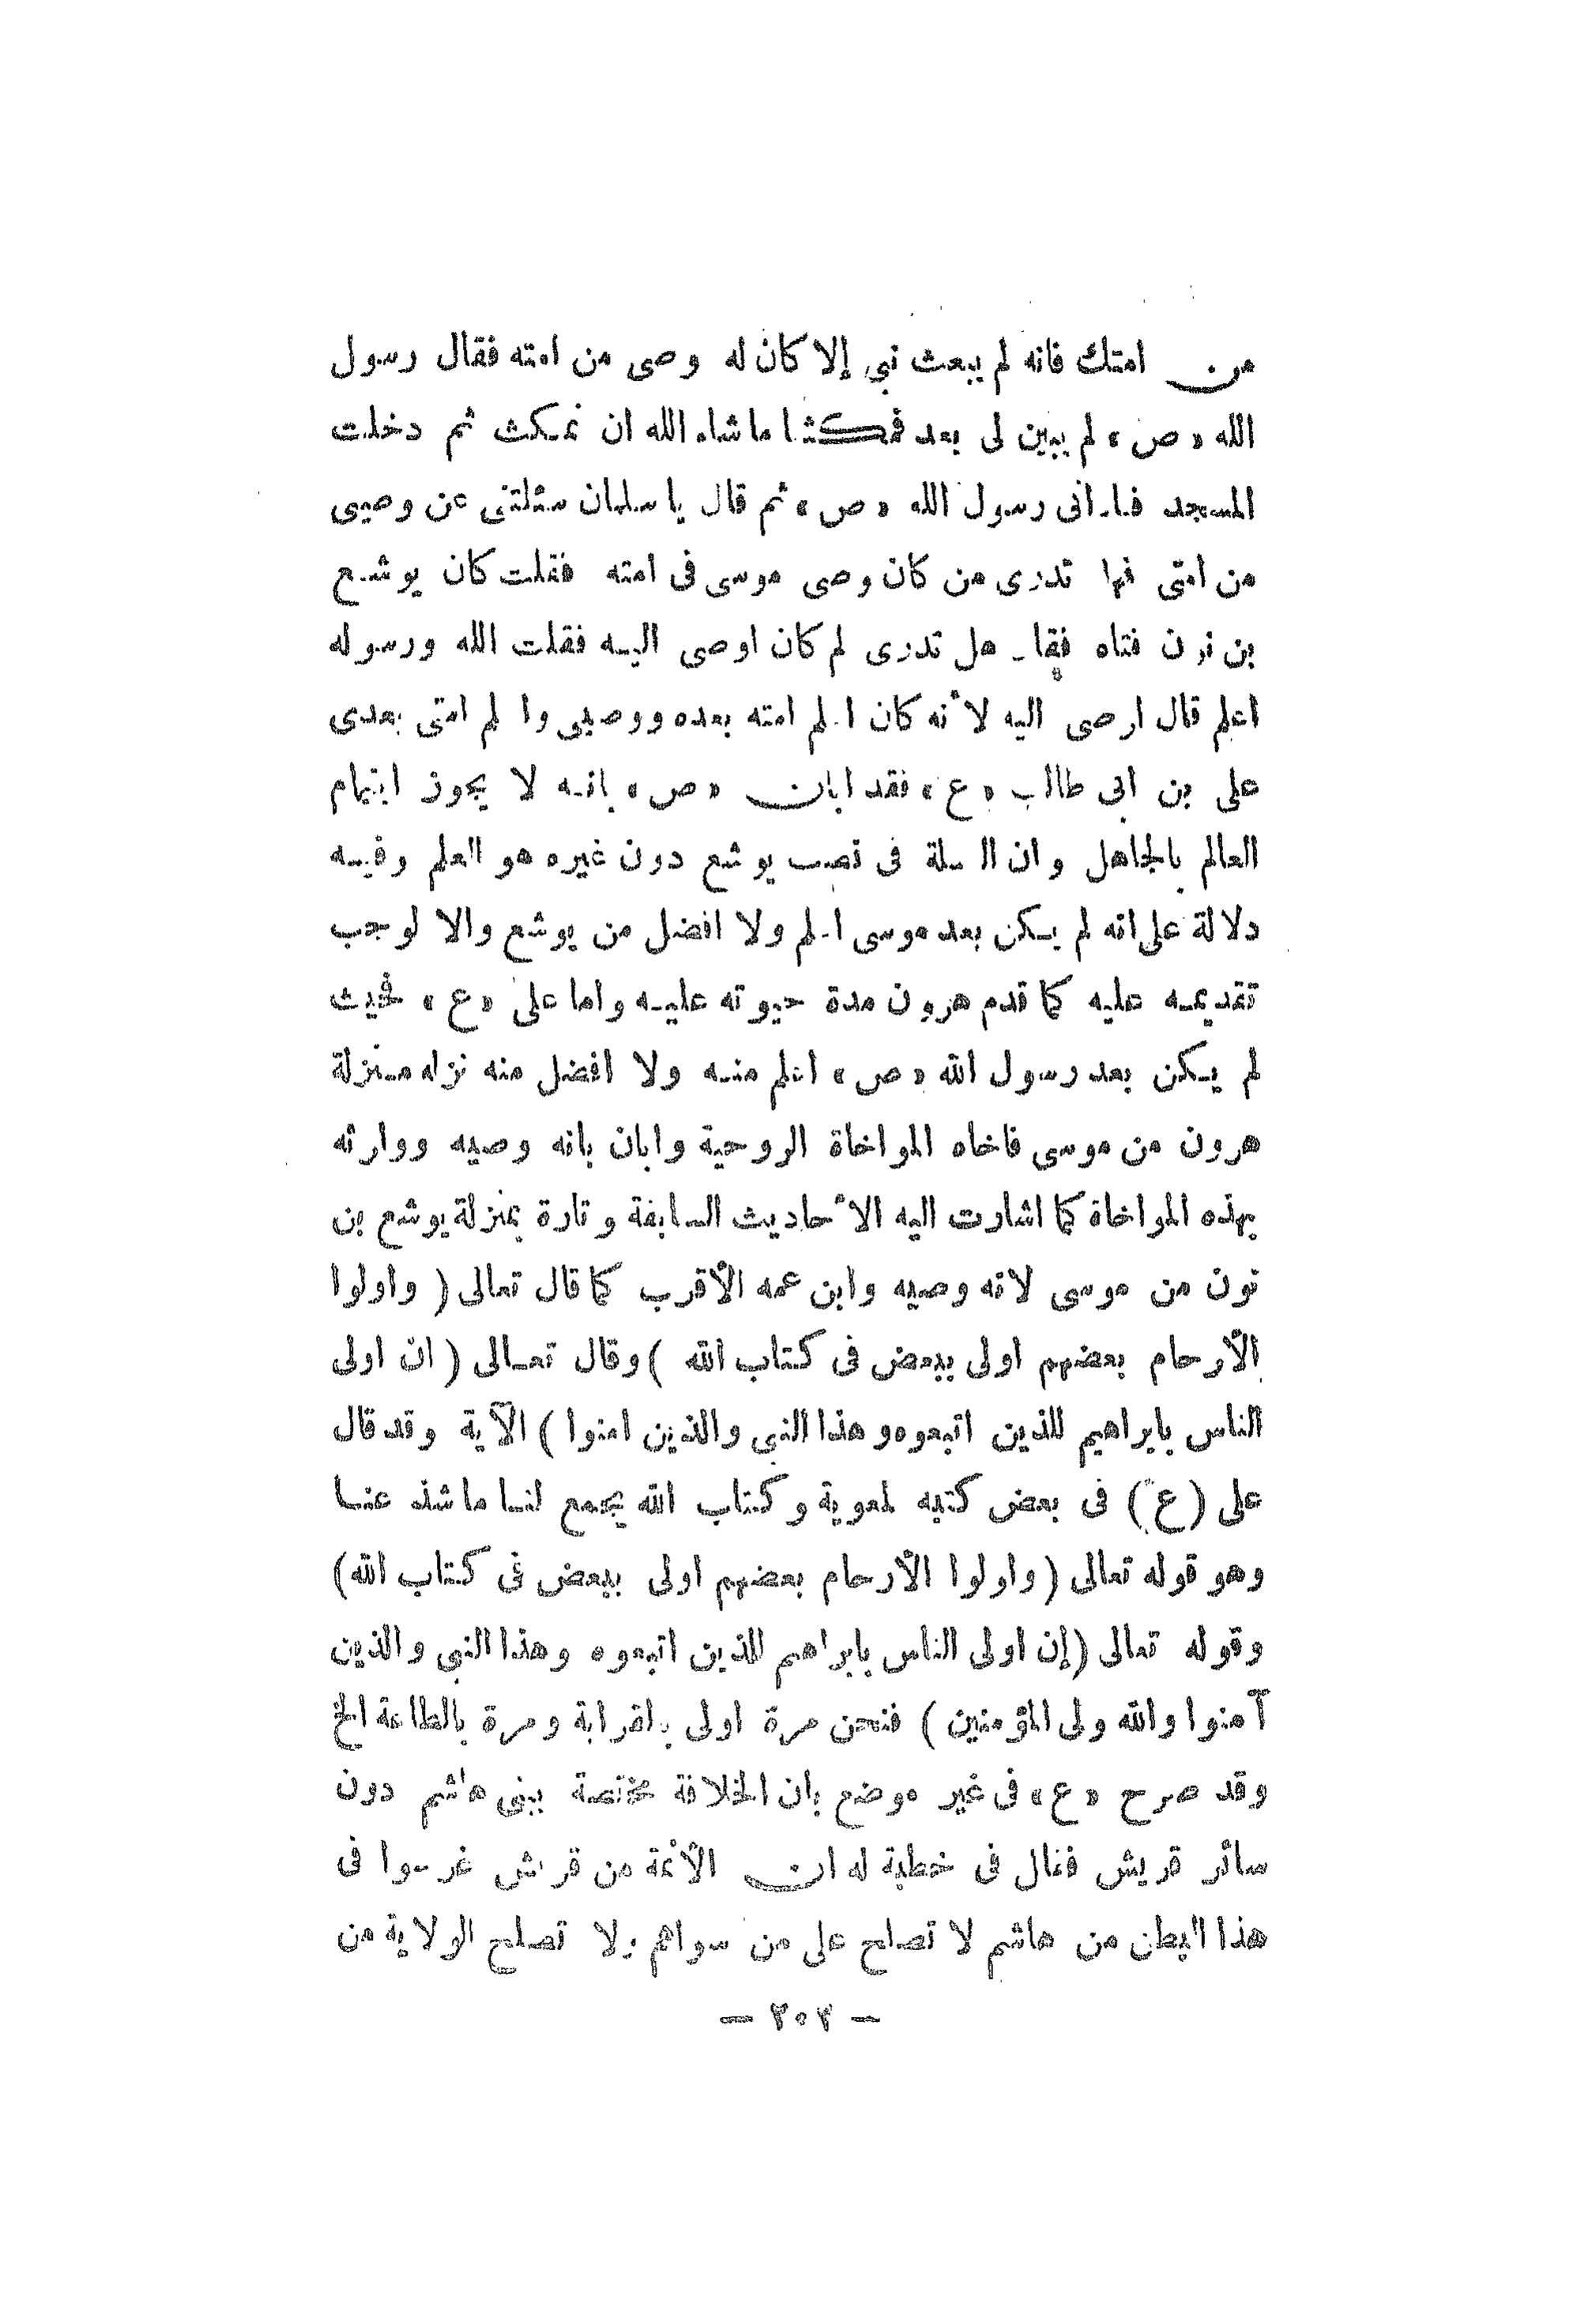 من امتك فانه لم يبعث نبي إلا كان له وصى من امته فقال رسول
الله «ص» لم يبين لى بعد فمكثنا ما شاء الله ان نمكث ثم دخلت
المسجد فنادانى رسول الله «ص» ثم قال يا سلمان سئلتنى عن وصيى
من امتى فهل تدرى من كان وصى موسى فى امته فقلت كان يوشع
بن نون فتاه فقال هل تدرى لم كان اوصى اليه فقلت الله ورسوله
اعلم قال اوصى اليه لأنه كان اعلم امته بعده ووصيى واعلم امتى بعدى
على بن ابى طالب «ع» فقد ابان «ص» بانه لا يجوز ايتمام
العالم بالجاهل وان العلة فى نصب يوشع دون غيره هو العلم وفيه
دلالة على انه لم يكن بعد موسى اعلم ولا افضل من يوشع والا لوجب
تقديمه عليه كما قدم هرون مدة حيوته عليه واما على «ع» فحيث
لم يكن بعد رسول الله «ص» اعلم منه ولا افضل منه نزله منزلة
هرون من موسى فاخاه المواخاة الروحية وابان بانه وصيه ووارثه
بهذه المواخاة كما اشارت اليه الأحاديث السابقة وتارة بمنزلة يوشع بن
نون من موسى لانه وصيه وابن عمه الأقرب كما قال تعالى ( واولوا
الأرحام بعضهم اولى ببعض فى كتاب الله ) وقال تعالى ( ان اولى
الناس بابراهيم للذين اتبعوه وهذا النبى والذين امنوا ) الآية وقد قال
على (ع) فى بعض كتبه لمعوية وكتاب الله يجمع لنا ما شذ عنا
وهو قوله تعالى ( واولوا الأرحام بعضهم اولى ببعض فى كتاب الله)
وقوله تعالى (إن اولى الناس بابراهيم للذين اتبعوه وهذا النبى والذين
آمنوا والله ولى المؤمنين ) فنحن مرة اولى بالقرابة ومرة بالطاعة الخ
وقد صرح «ع» فى غير موضع بان الخلافة مختصة ببنى هاشم دون
سائر قريش فقال فى خطبة له ان الأئمة من قريش غرسوا فى
هذا البطن من هاشم لا تصلح على من سواهم ولا تصلح الولاية من